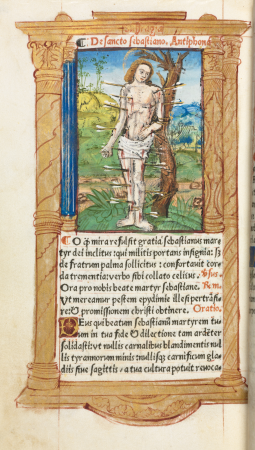 De sancto sebastiano. Antiphona
O q̃ mira refulsit gratia sebastianus mar
tyr dei inclitus: qui militis portans insignia: sʒ
de fratrum palma sollicitus: confortauit cor
da trementia: verbo sibi collato celitus. Ṽsus.
Ora pro nobis beate martyr sebastiane. Rem̃
Ut mereamur pestem epydimie illesi pertrãsi
re: ⁊ promissionem christi obtinere. Oratio.
DEus qui beatum sebastianũ martyrem tu
um in tua fide ⁊ dilectione tam ardẽter
solidasti: vt nullis carnalibus blandimentis nul
lis tyrannorum minis: nullisq; carnificum gla
diis siue sagittis, a tua cultura potuit reuoca